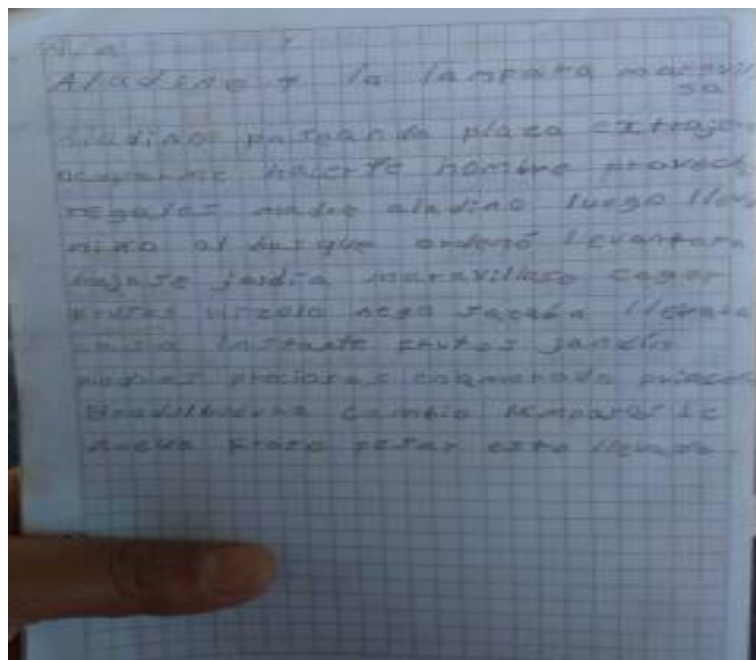 Aladino y la lampara maravill
sa
aladino paseando plaza extraje
ocuparme hacerte hombre provech
regalos madre aladino luego lle
niño al bosque ordenó levantara
bajase jardín maravilloso coger
frutas hizolo nego sacaba
instante frutos jardín
piedras preciosas enamorado princes
cambio lamparas le
nueva frase pesar esto llevado